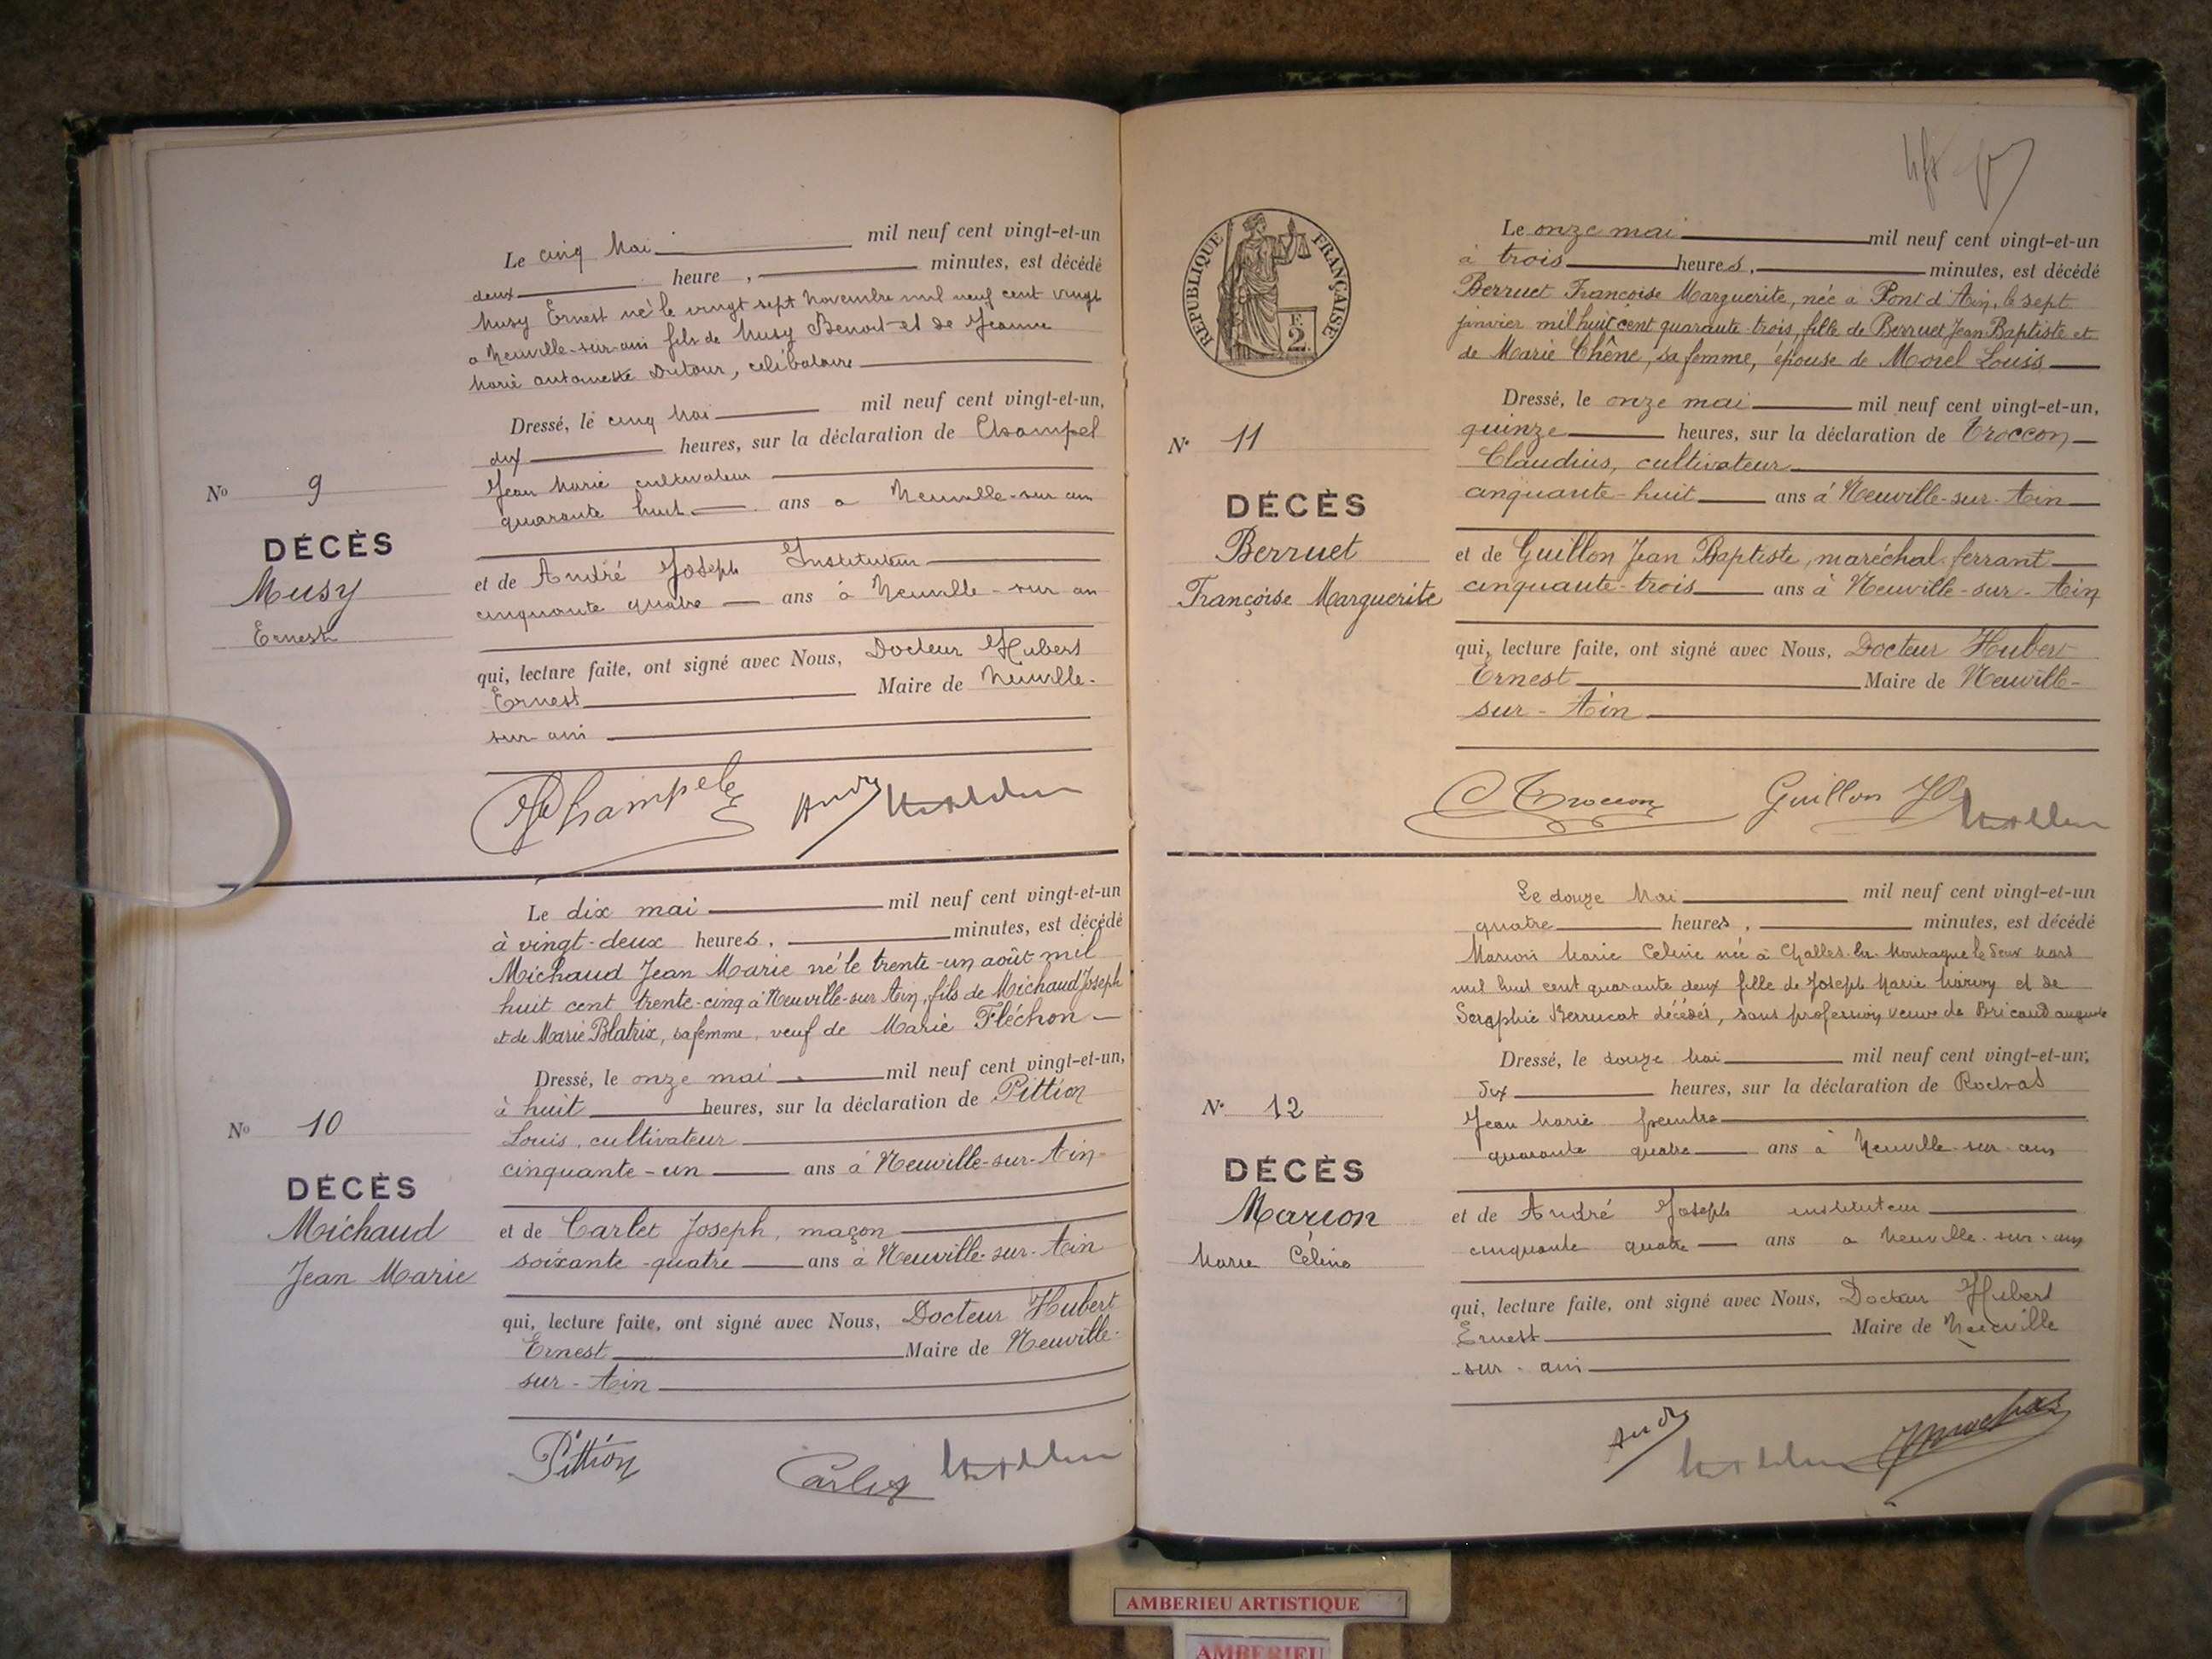 Le cinq Mai mil neuf cent vingt-et-un
deux heure , minutes, est décédé
Musy Ernest né le vingt sept Novembre mil neuf cent vingt
a Neuville-sur-ain fils de Musy Benoit et de Jeanne
Marie antoinette Dutour, célibataire
Dressé, le cinq Mai mil neuf cent vingt-et-un,
dix heures, sur la déclaration de Champel
Jean Marie cultivateur
quarante huit ans a Neuville-sur ain
No 9
DÉCÈS
Musy
Ernest
et de André Joseph Instituteur
cinquante quatre ans à Neuville-sur ain
qui, lecture faite, ont signé avec Nous, Docteur Hubert
Ernest Maire de Neuville-
sur-ain
Champel André
Le dix mai mil neuf cent vingt-et-un
à vingt-deux heures, minutes, est décédé
Michaud Jean Marie né le trente-un août mil
huit cent trente-cinq à Neuville-sur Ain, fils de Michaud Joseph
et de Marie Blatrix, sa femme, veuf de Marie Fléchon
Dressé, le onze mai mil neuf cent vingt-et-un,
à huit heures, sur la déclaration de Pittion
Louis, cultivateur
cinquante-un ans à Neuville-sur-Ain
No 10
DÉCÈS
Michaud
Jean Marie
et de Carlet Joseph, maçon
soixante-quatre ans à Neuville-sur-Ain
qui, lecture faite, ont signé avec Nous, Docteur Hubert
Ernest Maire de Neuville-
sur-Ain
Pittion Carlet
RÉPUBLIQUE FRANÇAISE
F.
2.
Le onze mai mil neuf cent vingt-et-un
à trois heures, minutes, est décédé
Berruet Françoise Marguerite, née à Pont d'Ain, le sept
janvier mil huit cent quarante-trois, fille de Berruet Jean Baptiste et
de Marie Chêne, sa femme, épouse de Morel Louis
Dressé, le onze mai mil neuf cent vingt-et-un,
quinze heures, sur la déclaration de Troccon
Claudius, cultivateur
cinquante-huit ans à Neuville-sur-Ain
No 11
DÉCÈS
Berruet
Françoise Marguerite
et de Guillon Jean Baptiste, maréchal-ferrant
cinquante-trois ans à Neuville-sur-Ain
qui, lecture faite, ont signé avec Nous, Docteur Hubert
Ernest Maire de Neuville-
sur-Ain
C Troccon Guillon
Le douze Mai mil neuf cent vingt-et-un
quatre heures, minutes, est décédé
Marion Marie Celine née à Challes-la-Montagne le deux Mars
mil huit cent quarante deux fille de Joseph Marie Marion et de
Seraphie décédés, sans profession, veuve de Bricaud auguste
Dressé, le douze Mai mil neuf cent vingt-et-un,
dix heures, sur la déclaration de Rochas
Jean Marie peintre
quarante quatre ans à Neuville-sur-ain
No 12
DÉCÈS
Marion
Marie Céline
et de André Joseph instituteur
cinquante quatre ans a Neuville-sur-ain
qui, lecture faite, ont signé avec Nous, Docteur Hubert
Ernest Maire de Neuville
-sur-ain
André Rochas
AMBERIEU ARTISTIQUE
AMBERIEU